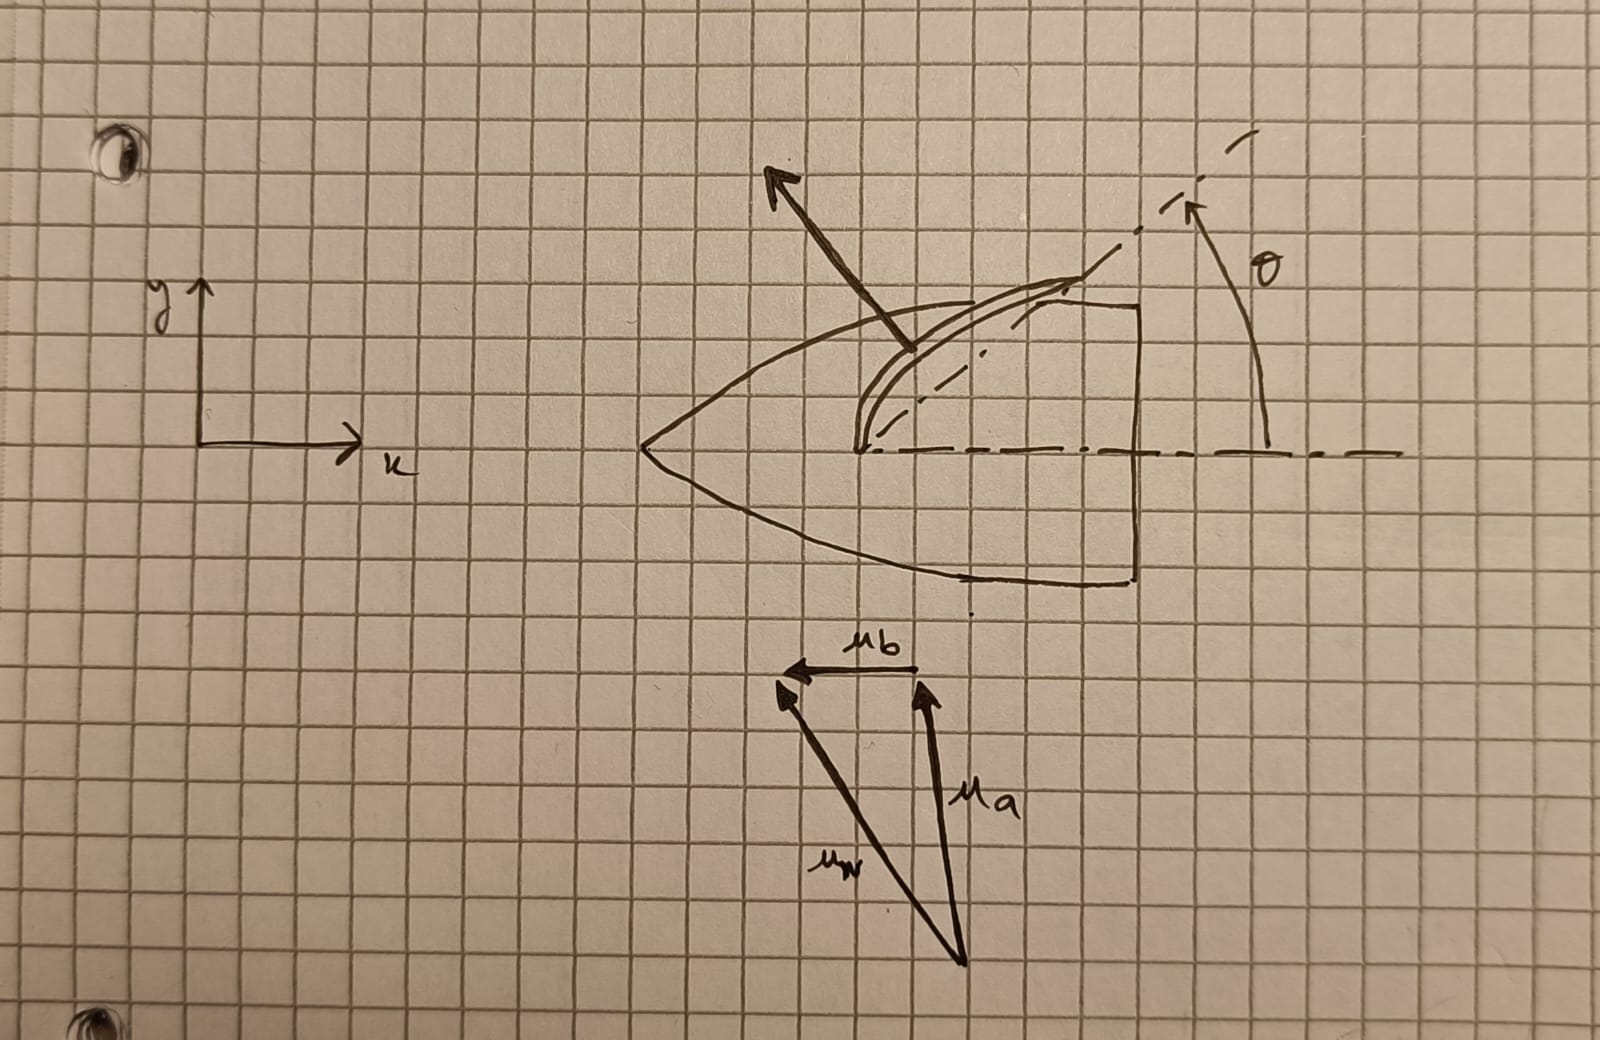 y
x
θ
ub
ua
uw